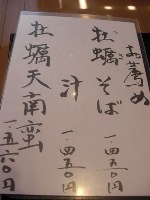 お薦め
牡蠣そば
一四五〇円
牡蠣汁
一四五〇円
牡蠣天南蛮
一五六〇円